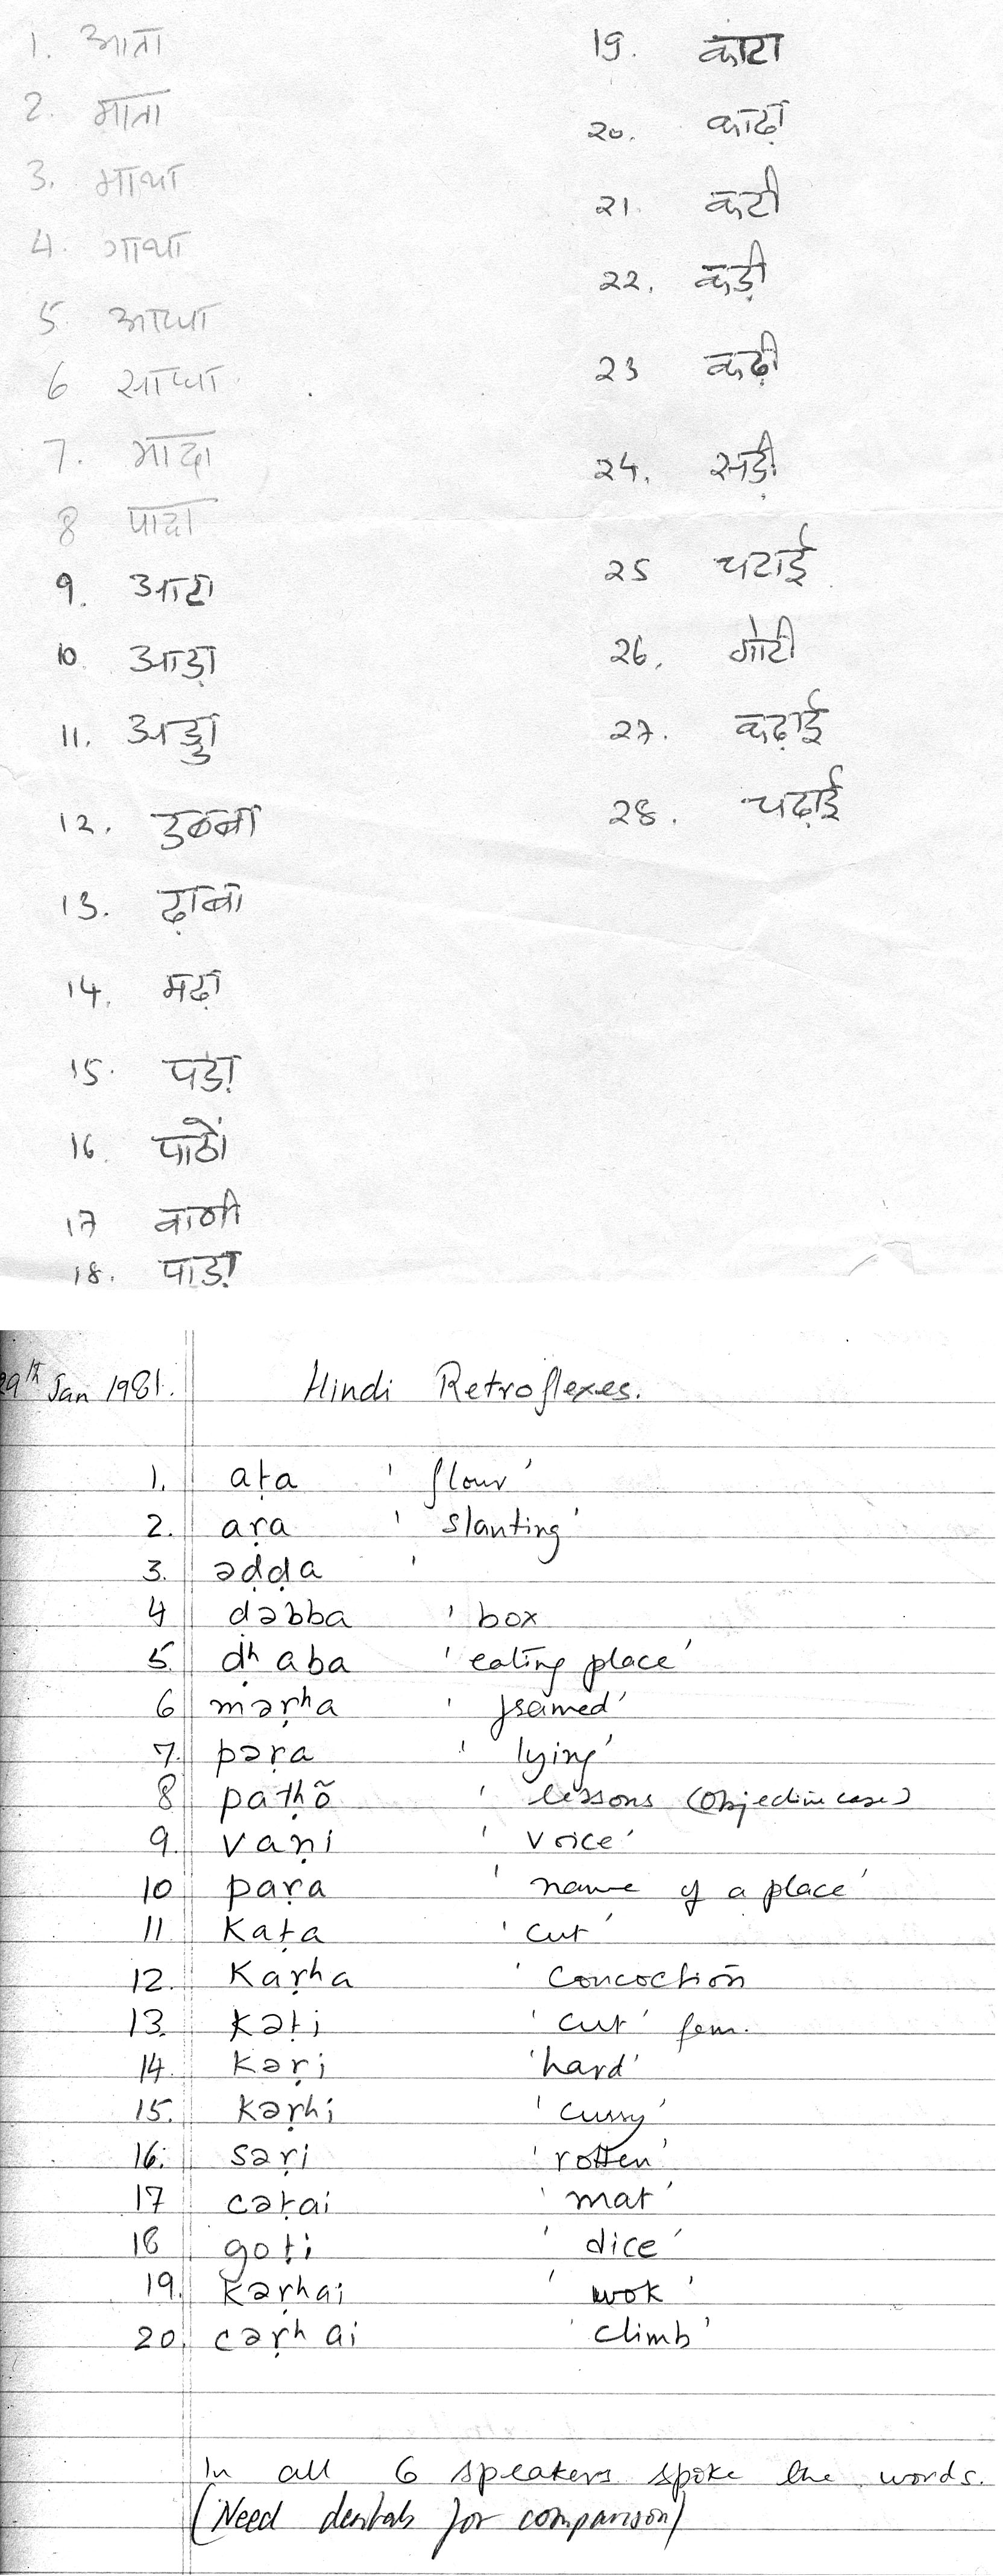 1. आता
2. माता
3. माथा
4. गाथा
5. आधा
6 साधा
7. मादा
8 पादा
9. आटा
10. आड़ा
11. अड्डा
12. डब्बा
13. ढ़ाबा
14. मढ़ा
15. पड़ा
16. पाठों
17 वाणी
18. पाड़ा
19. काटा
२०. काढ़ा
२1. कटी
२२. कड़ी
२3 कढ़ी
२4. सड़ी
२5 चटाई
२6. गोटी
२7. कढ़ाई
२8. चढ़ाई
29th Jan 1981. Hindi Retroflexes.
1. aṭa 'flour'
2. aṛa 'slanting'
3. əḍḍa '
4 ḍəbba 'box
5. ḍhaba 'eating place'
6 məṛha 'framed'
7. pəṛa 'lying'
8 paṭhõ 'lessons (Objective case)
9. vaṇi 'voice'
10 paṛa 'name of a place'
11 kaṭa 'cut'
12. kaṛha 'concoction
13. kəṭi 'cut' fem.
14. kəṛi 'hard'
15. kəṛhi 'curry'
16. səṛi 'rotten'
17 cəṭai 'mat'
18 goṭi 'dice'
19. kəṛhai 'wok'
20. cəṛhai 'climb'
In all 6 speakers spoke the words.
(Need dentals for comparison)